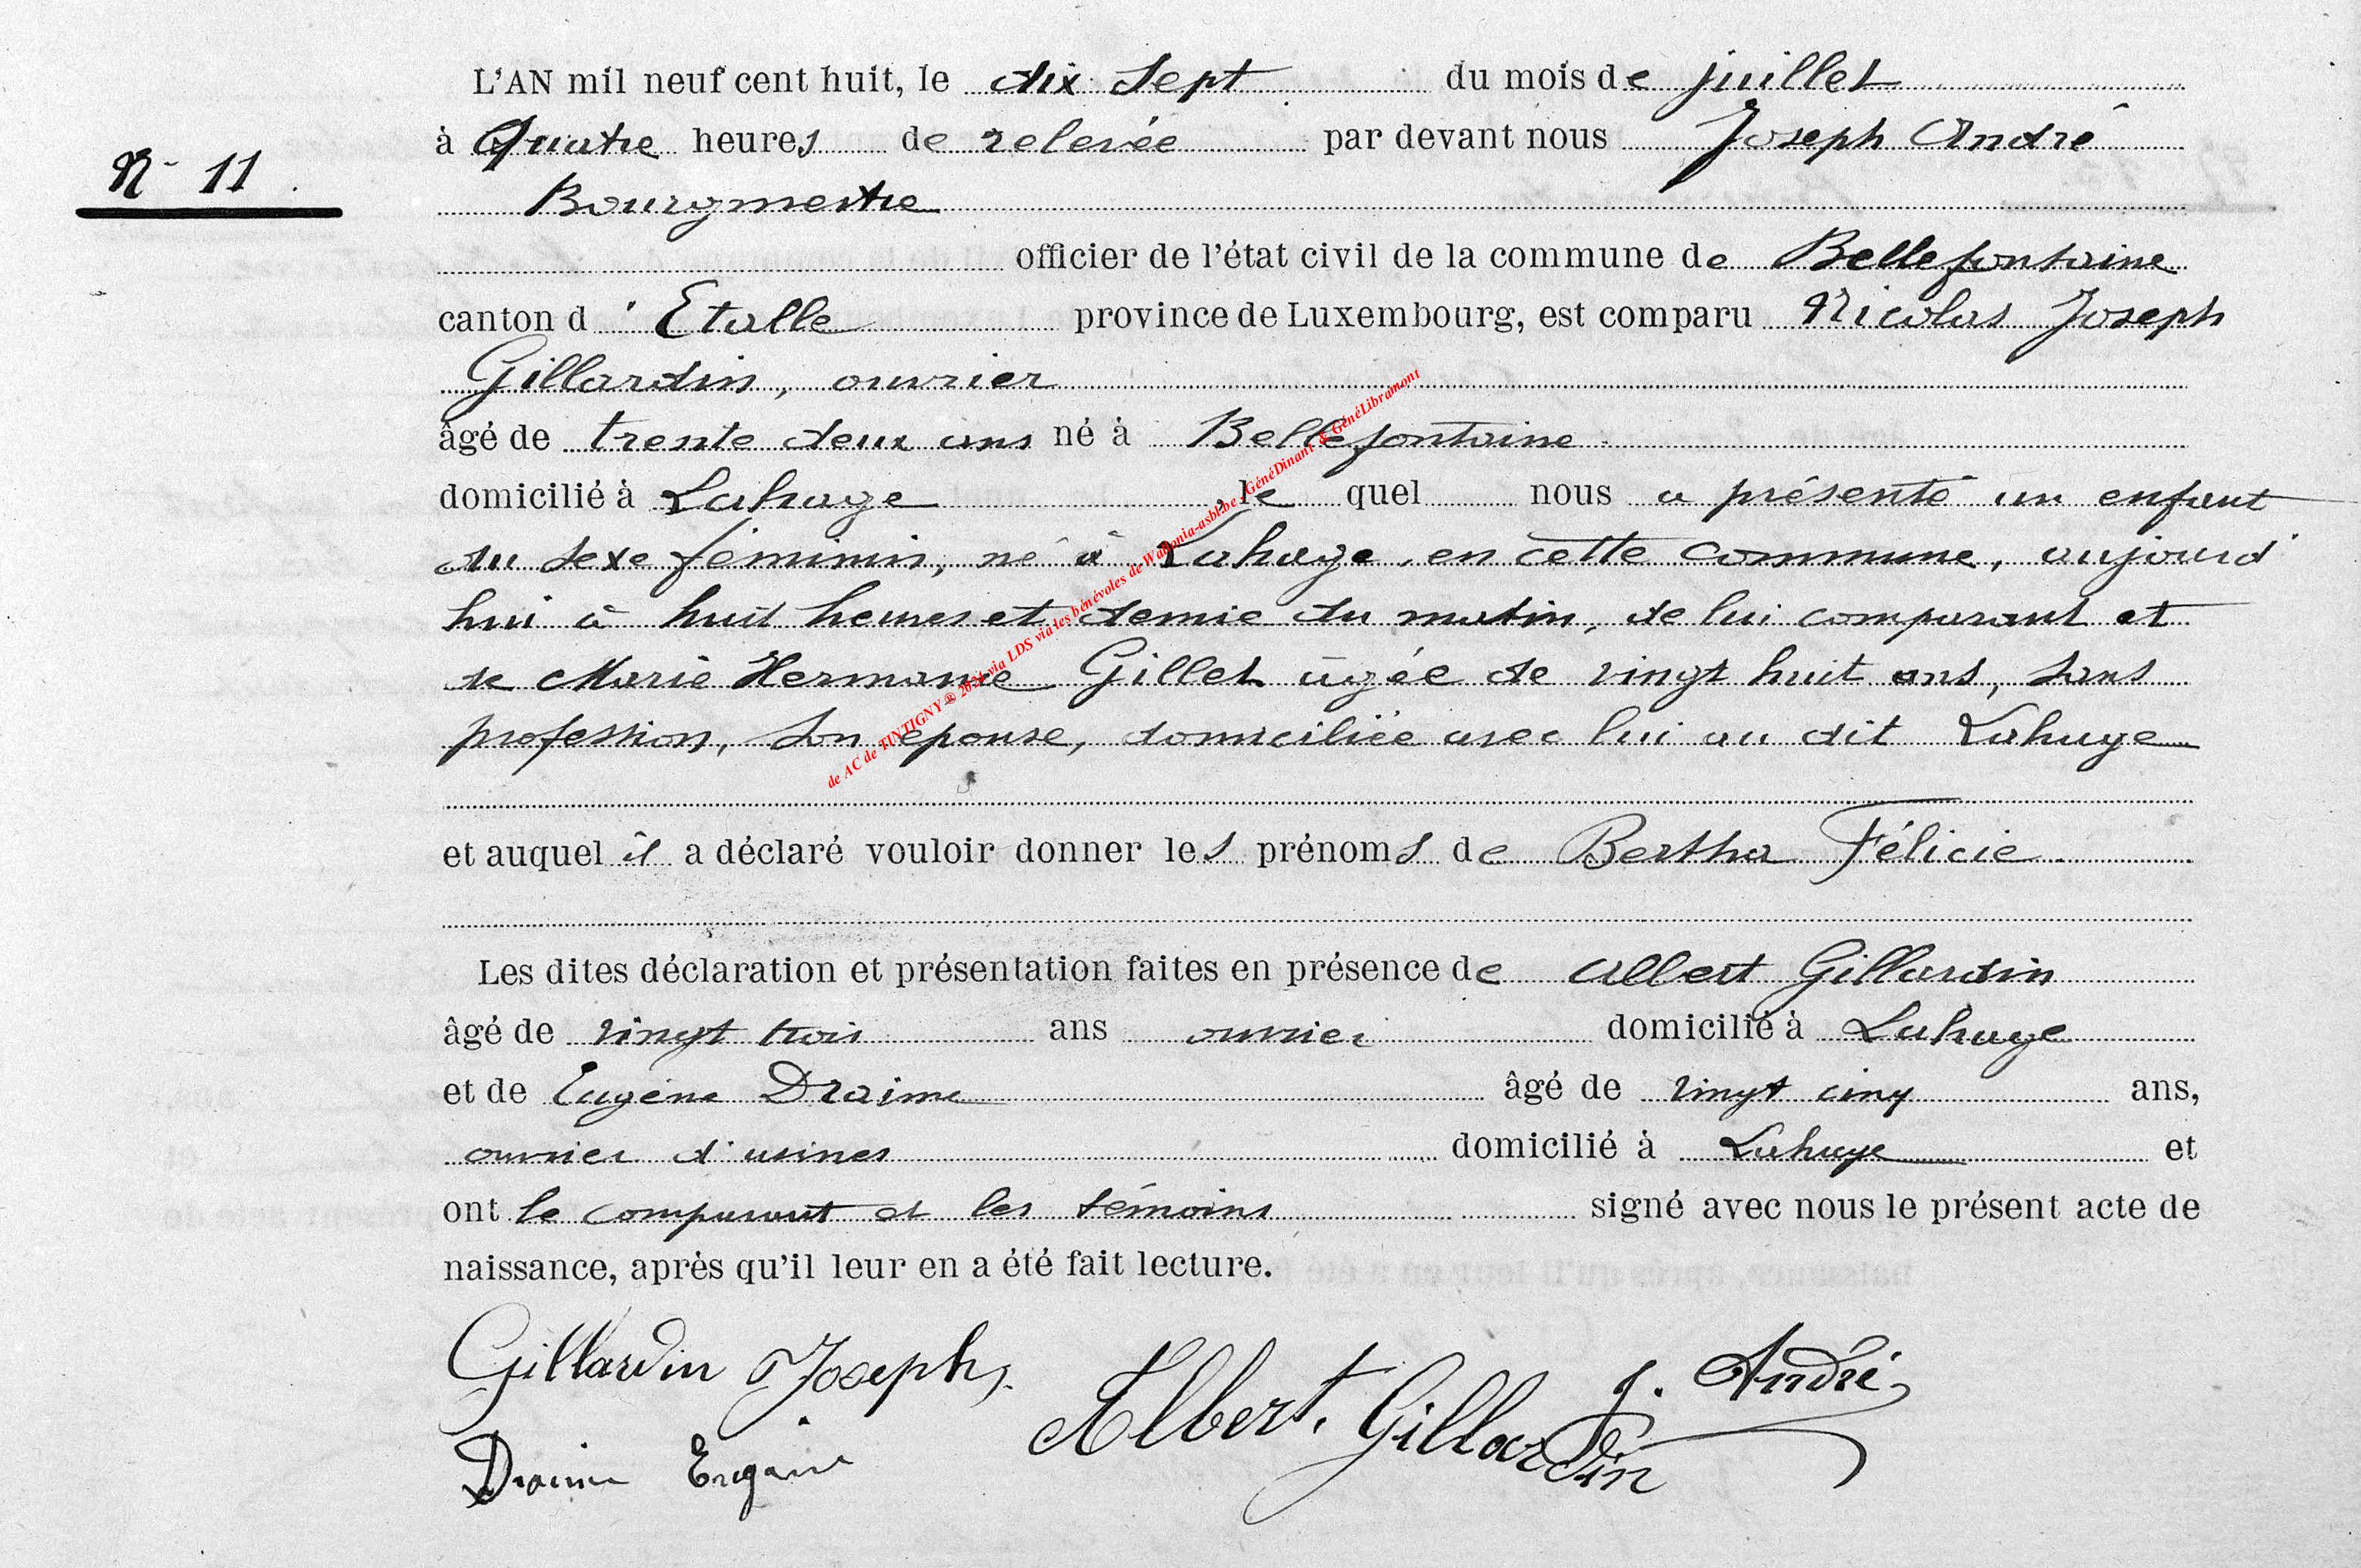 L'AN mil neuf cent huit, le dix sept du mois de juillet
à Quatre heures de relevée par devant nous Joseph André
N° 11
Bourgmestre
officier de l'état civil de la commune de Bellefontaine
canton d'Etalle province de Luxembourg, est comparu Nicolas Joseph
Gillardin, ouvrier
âgé de trente deux ans né à Bellefontaine
domicilié à Lahage, le quel nous a présenté un enfant
du sexe féminin, né à Lahage, en cette commune, aujourd'
hui à huit heures et demie du matin, de lui comparant et
de Marie Hermance Gillet âgée de vingt huit ans, sans
profession, son épouse, domiciliée avec lui au dit Lahage
et auquel il a déclaré vouloir donner les prénoms de Bertha Félicie
Les dites déclaration et présentation faites en présence de Albert Gillardin
âgé de vingt trois ans ouvrier domicilié à Lahage
et de Eugène Draime âgé de vingt cinq ans,
ouvrier d'usines domicilié à Lahage et
ont le comparant et les témoins signé avec nous le présent acte de
naissance, après qu'il leur en a été fait lecture.
Gillardin Joseph
J. André
Albert Gillardin
Draime Eugène
de AC de TINTIGNY ® 2024 via LDS via les bénévoles de Wallonia-asbl.be, GénéDinant & GénéLibramont